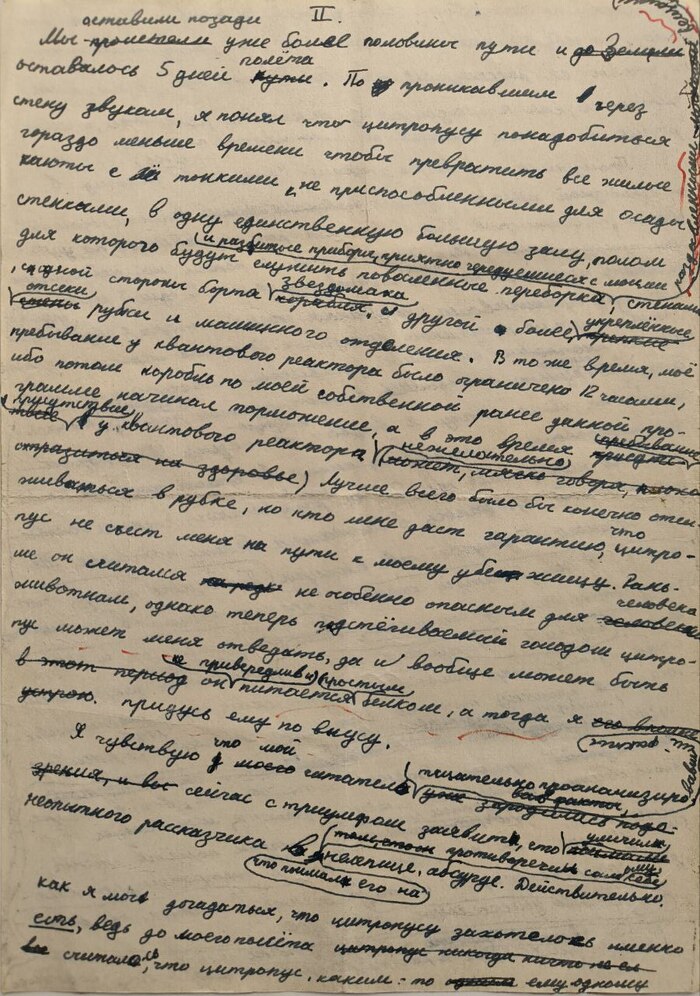 II.
оставили позади
Мы пролетели уже более половины пути и до Земли
оставалось 5 дней пути. полёта По проникавшим через
стену звукам, я понял что цитропусу понадобиться
гораздо меньше времени чтобы превратить все жилые
каюты с тонкими, не приспособленными для осады
стенками, в одну единственную большую залу, полом
и разбитые приборы, приятно чередующиеся с
для которого будут служить поваленные переборки, стенами
с одной стороны борта корабля, звездолака а другой более укреплённые
стены отсеки рубки и машинного отделения. В то же время, моё
пребывание у квантового реактора было ограничено 12 часами,
ибо потом корабль по моей собственной ранее данной про-
грамме начинал торможение, а в это время
присутствие у квантового реактора нежелательно
отразиться на здоровье) Лучше всего было бы конечно отси
живаться в рубке, но кто мне даст гарантию, что цитро-
пус не съест меня на пути к моему убежищу. Рань-
ше он считался не особенно опасным для человека
животным, однако теперь подстёгиваемый голодом цитро-
пус может меня отведать, да и вообще может быть
в этот период он не привередлив и питается простым белком, а тогда я
придусь ему по вкусу.
Я чувствую что мой читатель тщательно проанализировав
зрения, и вы все факты,
сейчас с триумфом заявит, что уличил
неопытного рассказчика в том, что он противоречит сам себе
нелепице, абсурде. Действительно,
что поймал его на
как я мог догадаться, что цитропусу захотелось именно
есть, ведь до моего полёта цитропус никогда ничего не ел
все считалось, что цитропус, каким-то ему одному